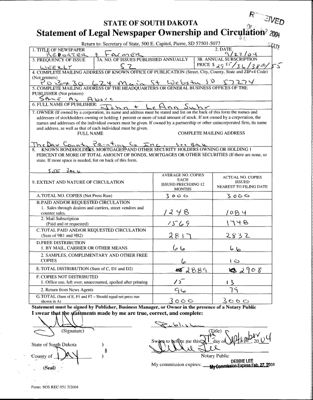 STATE OF SOUTH DAKOTA
Statement of Legal Newspaper Ownership and Circulation
Return to: Secretary of State, 500 E. Capitol, Pierre, SD 57501-5077
1. TITLE OF NEWSPAPER
Reporter & Farmer
2. DATE
3. FREQUENCY OF ISSUE
WEEKLY
3A. NO. OF ISSUES PUBLISHED ANNUALLY
52
3B. ANNUAL SUBSCRIPTION
PRICE $
4. COMPLETE MAILING ADDRESS OF KNOWN OFFICE OF PUBLICATION (Street, City, County, State and ZIP+4 Code)
(Not printers)
PO Box 30 624 Main St Webster SD 57274
5. COMPLETE MAILING ADDRESS OF THE HEADQUARTERS OR GENERAL BUSINESS OFFICES OF THE
PUBLISHER (Not printer)
Same As Above
6. FULL NAME OF PUBLISHER: John & LeAnn Suhr
7. OWNER (If owned by a corporation, its name and address must be stated and also on the back of this form the names and
addresses of stockholders owning or holding 1 percent or more of total amount of stock. If not owned by a corporation, the
names and addresses of the individual owners must be given. If owned by a partnership or other unincorporated firm, its name
and address, as well as that of each individual must be given.
FULL NAME
COMPLETE MAILING ADDRESS
8. KNOWN BONDHOLDERS, MORTGAGES AND OTHER SECURITY HOLDERS OWNING OR HOLDING 1
PERCENT OR MORE OF TOTAL AMOUNT OF BONDS, MORTGAGES OR OTHER SECURITIES (If there are none, so
state. If more space is needed, list on back of this form.
9. EXTENT AND NATURE OF CIRCULATION
AVERAGE NO. COPIES
EACH
ISSUED PRECEDING 12
MONTHS
ACTUAL NO. COPIES
ISSUED
NEAREST TO FILING DATE
A. TOTAL NO. COPIES (Net Press Run)
3000
3000
B. PAID AND/OR REQUESTED CIRCULATION
1. Sales through dealers and carriers, street vendors and
counter sales.
1248
1084
2. Mail Subscription
(Paid and or requested)
1569
1748
C. TOTAL PAID AND/OR REQUESTED CIRCULATION
(Sum of 9B1 and 9B2)
2817
2832
D. FREE DISTRIBUTION
1. BY MAIL, CARRIER OR OTHER MEANS
66
66
2. SAMPLES, COMPLIMENTARY AND OTHER FREE
COPIES
6
10
E. TOTAL DISTRIBUTION (Sum of C, D1 and D2)
2889
2908
F. COPIES NOT DISTRIBUTED
1. Office use, left over, unaccounted, spoiled after printing
15
13
2. Return from News Agents
96
79
G. TOTAL (Sum of E, F1 and F2 - Should equal net press run
shown in A)
3000
3000
Statement must be signed by Publisher, Business Manager, or Owner in the presence of a Notary Public
I swear that the statements made by me are true, correct, and complete:
(Signature)
Publisher
(Title)
State of South Dakota )
County of DAY )
(Seal)
Sworn to before me this day of September, 2004
Notary Public
DEBBIE LEE
My commission expires: My Commission Expires Feb. 27,
Form: SOS REC 051 7/2004